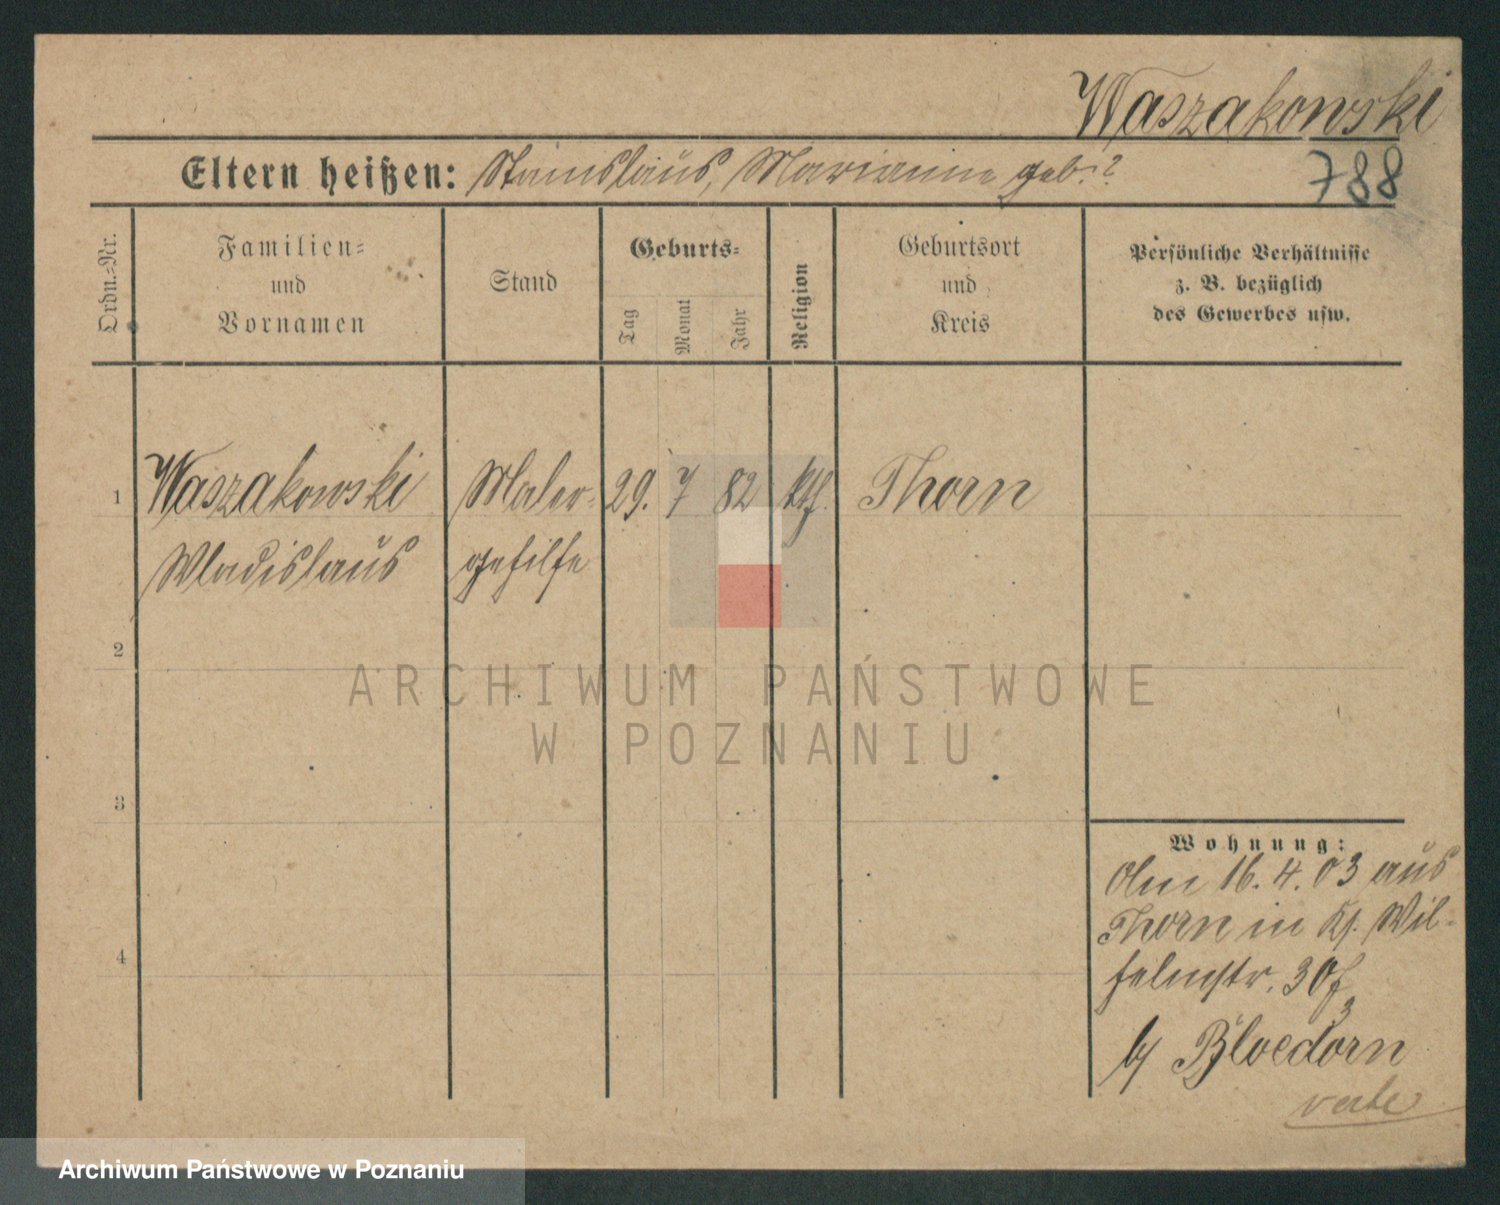 Waszakowski
Eltern heißen: Stanislaus, Marianna geb. ?
788
Ordn.-Nr.
Familien-
und
Vornamen
Stand
Geburts-
Tag
Monat
Jahr
Religion
Geburtsort
und
Kreis
Persönliche Verhältnisse
z. B. bezüglich
des Gewerbes usw.
1 Waszakowski Maler- 29. 7 82 kth. Thorn
Wladislaus gehilfe
2
3
4
Wohnung:
Am 16. 4. 03 aus
Thorn in Wil-
helmstr. 30
b/ Bloedorn
verte
ARCHIWUM PAŃSTWOWE
W POZNANIU
Archiwum Państwowe w Poznaniu